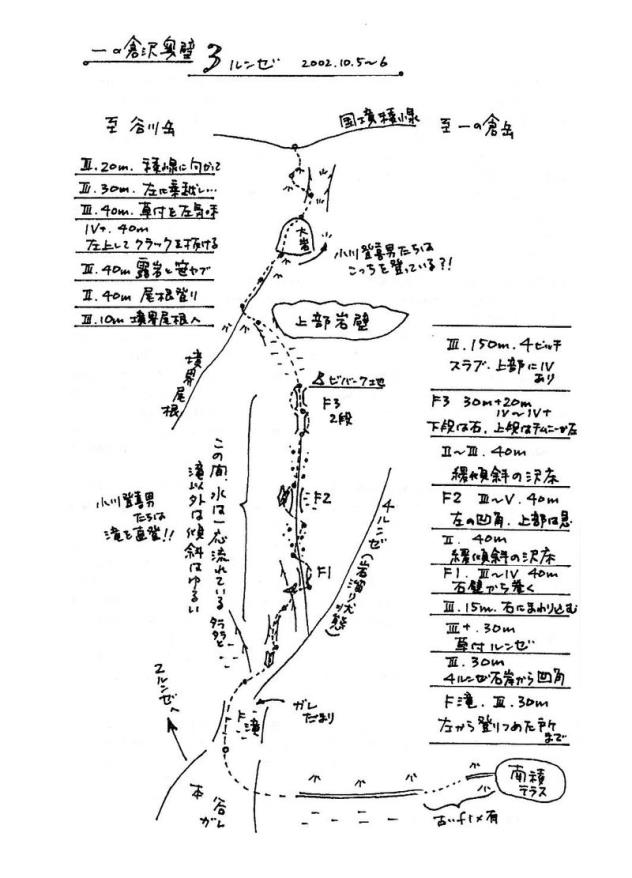 一の倉沢奥壁 3ルンゼ 2002.10.5~6
至 谷川岳
国境稜線
至 一の倉岳
Ⅲ.20m. 稜線に向かって
Ⅲ.30m. 左に乗越し…
Ⅲ.40m. 草付を左気味
Ⅳ+. 40m
左上してクラックを抜ける
Ⅲ.40m 露岩と笹ヤブ
Ⅱ.40m 尾根登り
Ⅲ.10m 境界尾根へ
大岩
小川登喜男たちは
こっちを登っている?!
上部岩壁
境界尾根
ビバーク地
F3
2段
F2
F1
この間、水は一応流れている
滝以外は傾斜はゆるい
小川登喜男
たちは
滝を直登!!
4ルンゼ(岩溜り状態)
タラタラと
2ルンゼへ
F滝
ガレ
たまり
本谷ガレ
南稜
テラス
古いfix有
Ⅲ.150m.4ピッチ
スラブ.上部にⅣ
あり
F3 30m+20m
Ⅳ~Ⅳ+
下段は右、上段はチムニーが左
Ⅱ~Ⅲ.40m
緩傾斜の沢床
F2 Ⅲ~Ⅴ.40m
左の凹角.上部は悪
Ⅱ.40m
緩傾斜の沢床
F1.Ⅲ~Ⅳ 40m
右壁から巻く
Ⅲ.15m.右にまわり込む
Ⅲ+.30m
草付ルンゼ
Ⅲ.30m
4ルンゼ右岸から凹角
F滝.Ⅲ.30m
左から登りつめた所
まで